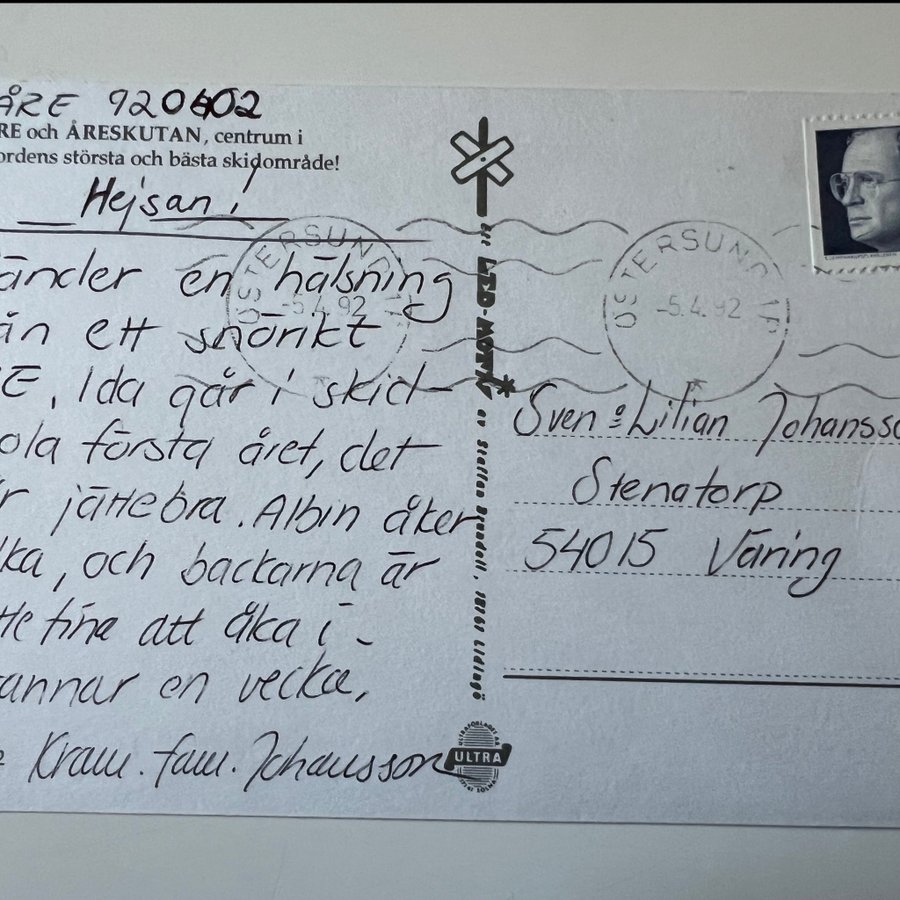 ÅRE 920402
RE och ÅRESKUTAN, centrum i
ordens största och bästa skidområde!
Hejsan!
änder en hälsning
ån ett snörikt
RE, Ida går i skid-
ola första året, det
är jättebra. Albin åker
ka, och backarna är
tte fina att åka i -
annar en vecka.
Kram. fam. Johansson
ÖSTERSUND 1P
-5.4.92
ÖSTERSUND 1P
-5.4.92
Ett LID-MOTIV*
av Staffan Brundell, 18161 Lidingö
ULTRAFÖRLAGET AB
ULTRA
Sven o Lilian Johansso
Stenatorp
54015 Väring